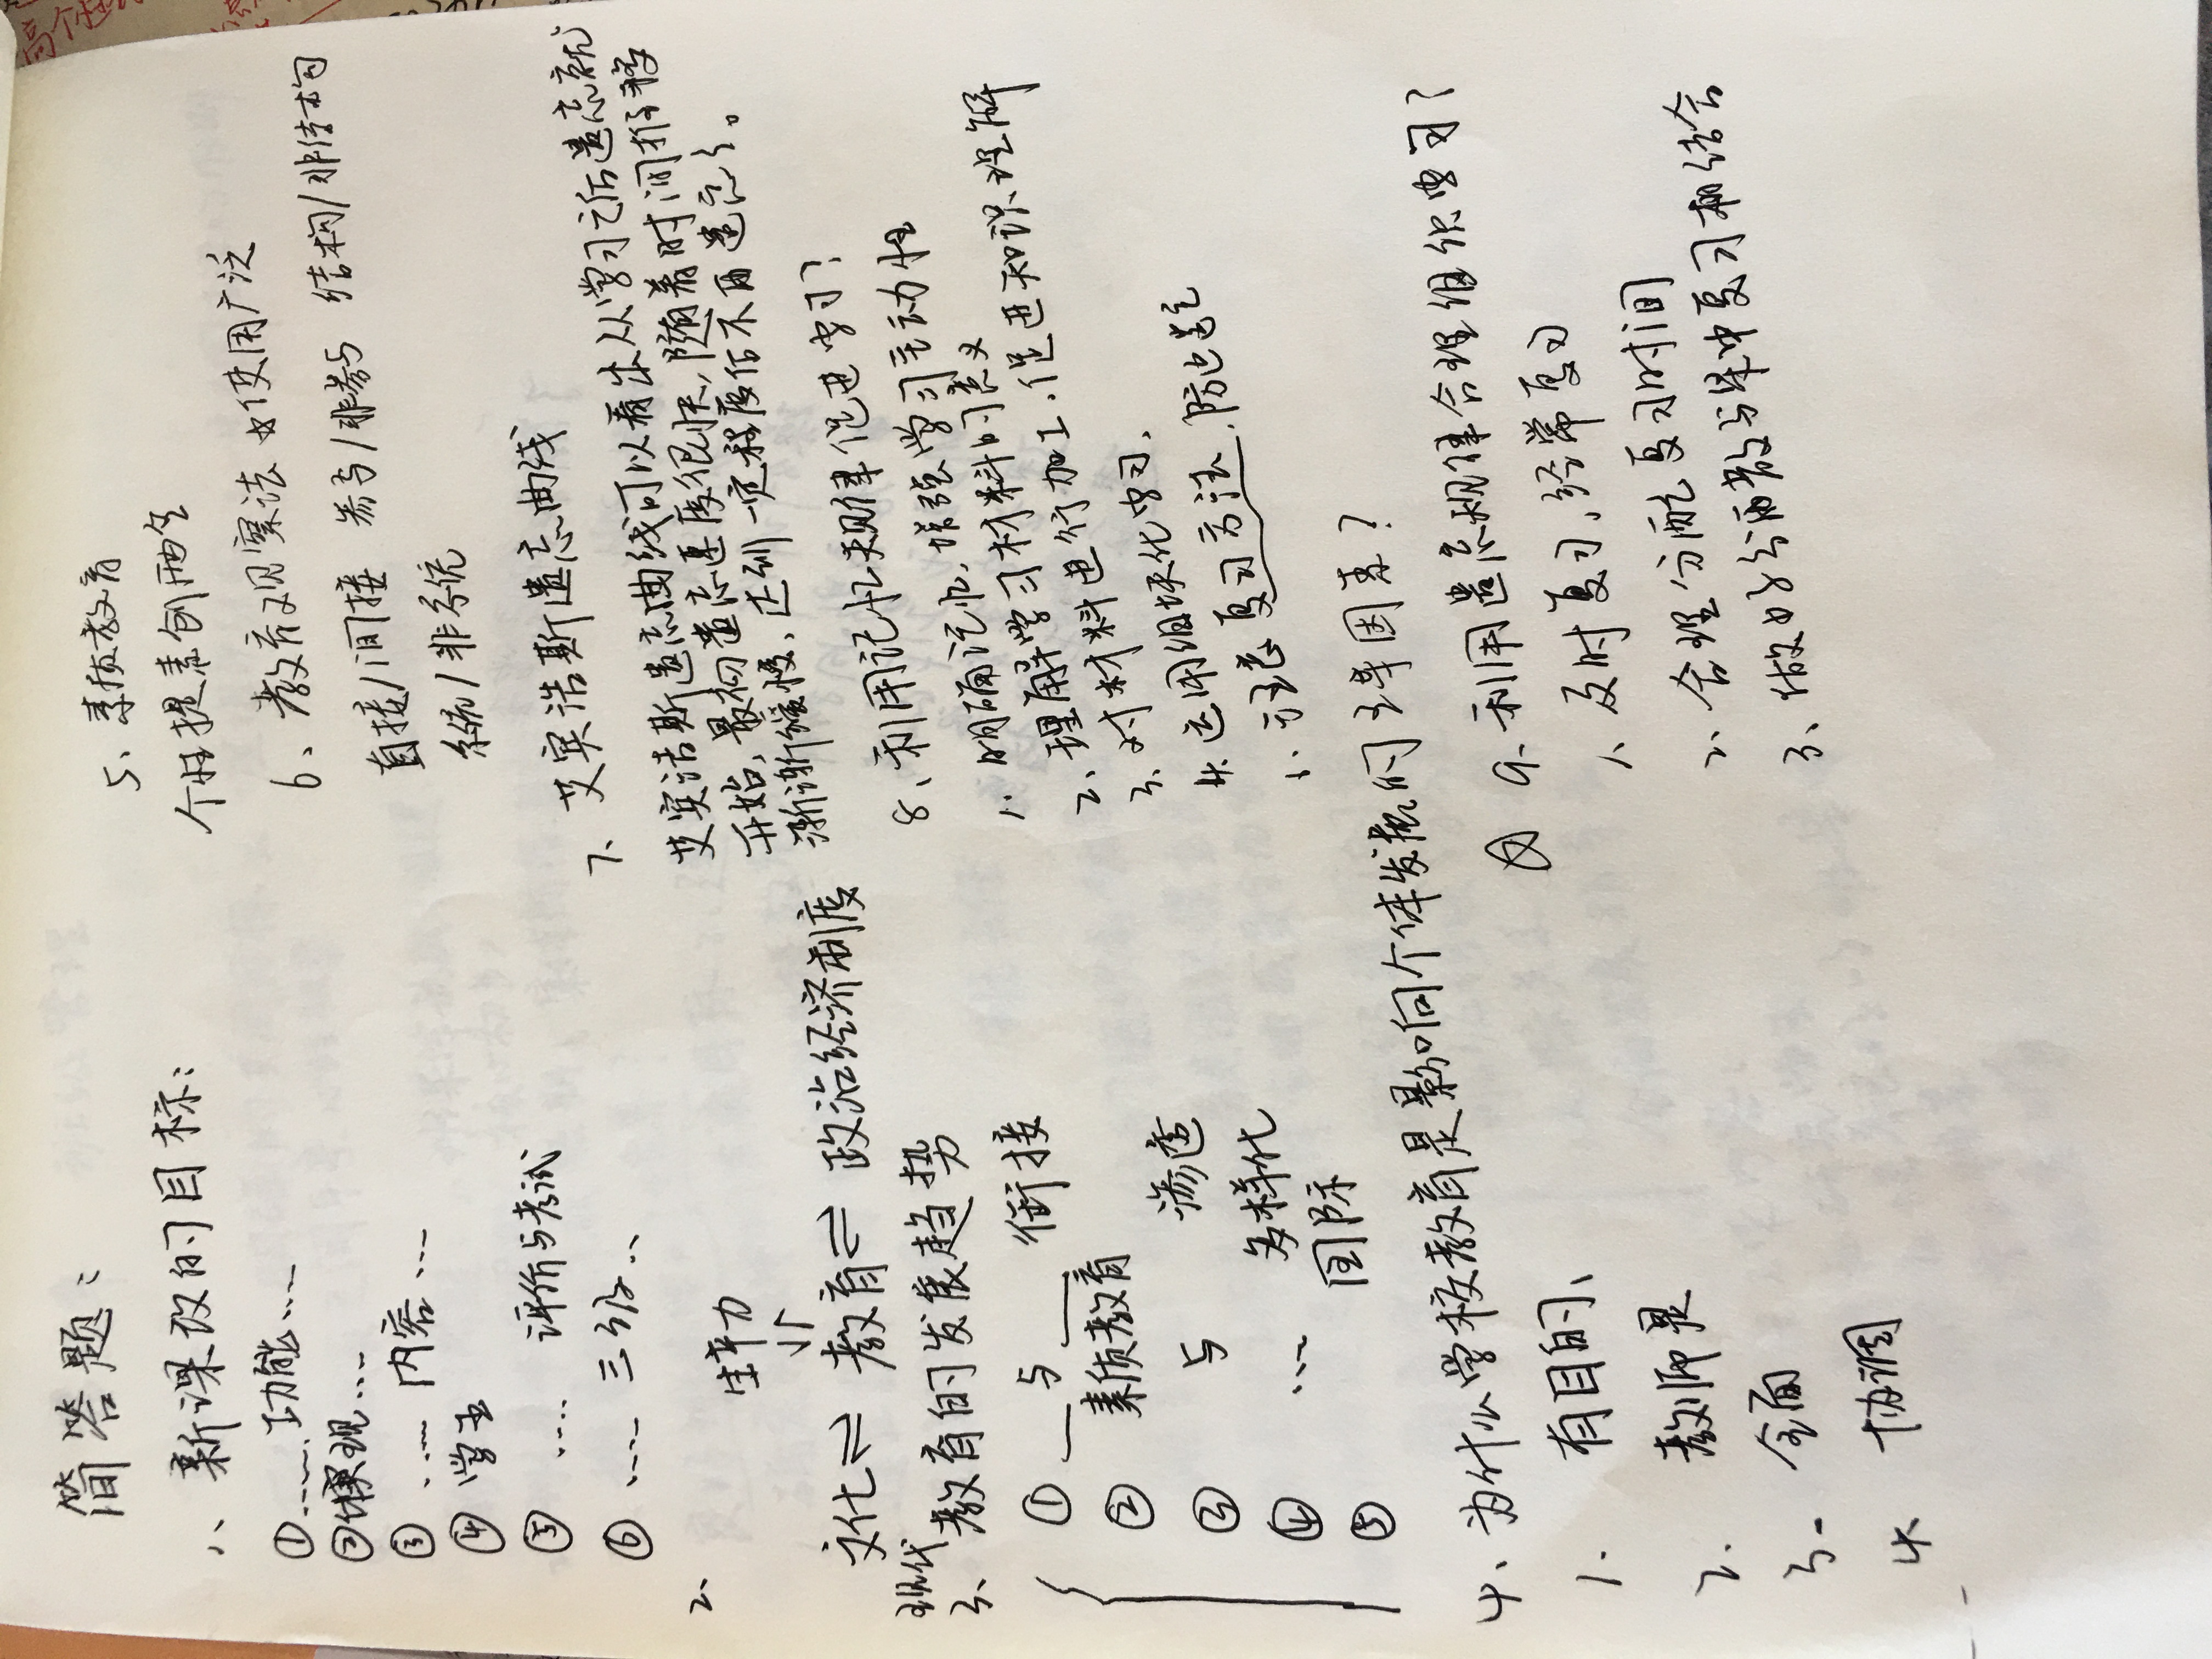 简答题：
1、新课改的目标：
①……功能……
②体现……
③ …… 内容 ……
④ 学生
⑤ …… 评价与考试
⑥ …… 三级 ..
2、
生产力
↓↑
文化⇌ 教育⇌ 政治经济制度
现代
3、教育的发展趋势
① __与__ 衔接
② 素质教育
③ 与 渗透
④ …… 多样化
⑤ 国际
4、为什么学校教育是影响个体发展的主导因素？
1. 有目的、
2. 教师是
3. 全面
4. 协调
5、素质教育
个性提素创两全
6、教育观察法 ☆使用广泛
直接/间接 参与/非参与 结构/非结构
系统/非系统
7、艾宾浩斯遗忘曲线
艾宾浩斯遗忘曲线可以看出从学习之后遗忘就
开始，最初遗忘速度很快，随着时间推移
渐渐缓慢，达到一定程度后不再遗忘了。
8、利用记忆规律促进学习？
1. 明确记忆，增强学习主动性
2、理解学习材料的意义
3、对材料进行加工，促进知识理解
4、运用组块化学习，
注意复习方法，防止遗忘
9、利用遗忘规律合理组织学习？
1、及时复习，经常复习
2、合理分配复习时间
3、做好分散与集中复习相结合